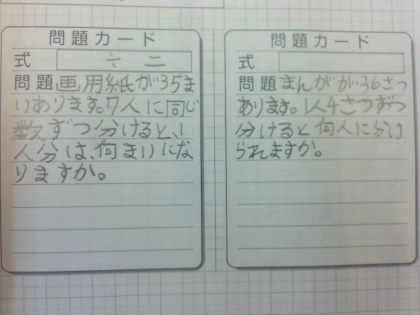 問題カード
式 ÷ =
問題 画用紙が35ま
いあります。7人に同じ
数ずつ分けると、1
人分は、何まいにな
りますか。
問題カード
式
問題 まんがが36さつ
あります。1人4さつずつ
分けると何人に分け
られますか。